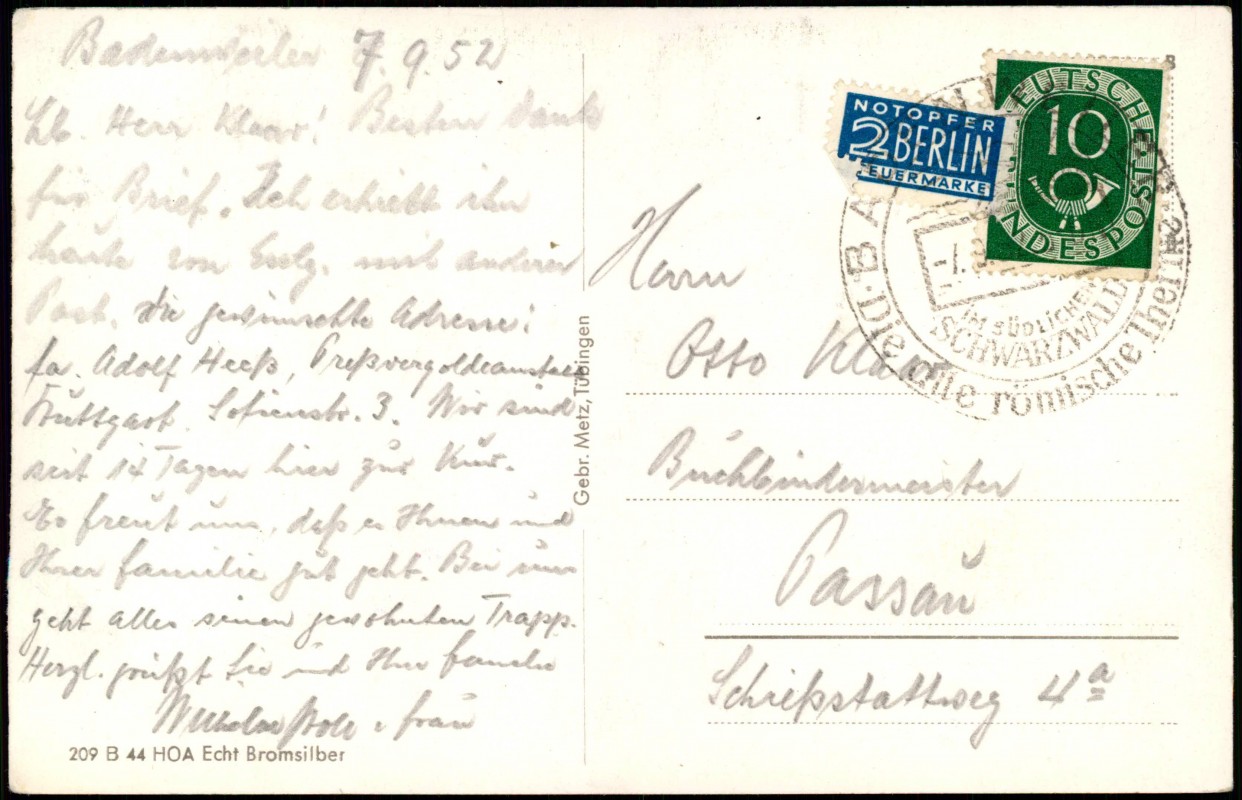 Badenweiler 7.9.52
Lb. Herr Klaar! Besten Dank
für Brief. Ich erhielt ihn
heute von Eslg. mit anderer
Post. Die gewünschte Adresse:
Fa. Adolf Heeß, Preßvergoldeanstalt
Stuttgart. Sofienstr. 3. Wir sind
seit 14 Tagen hier zur Kur.
Es freut uns, daß es Ihnen und
Ihrer Familie gut geht. Bei uns
geht alles seinen gewohnten Trapp.
Herzl. grüßt Sie und Ihre Familie
Wilhelm u. Frau
209 B 44 HOA Echt Bromsilber
Gebr. Metz, Tübingen
NOTOPFER
2 BERLIN
STEUERMARKE
DEUTSCHE BUNDESPOST
10
Die alte römische Therme
im südlichen
SCHWARZWALD
Herrn
Otto Klaar
Buchbindermeister
Passau
Schießstattweg 4a